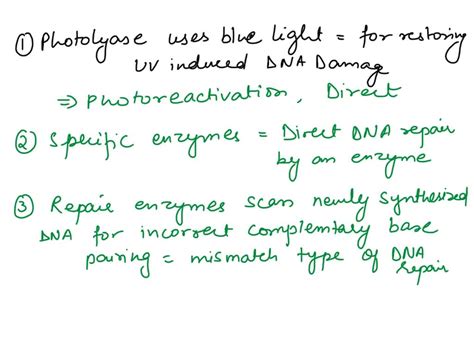 ① Photolyase uses blue light = for restoring
UV induced DNA Damag
⇒ Photoreactivation, Direct
② Specific enzymes = Direct DNA repair
by an enzyme
③ Repair enzymes scan newly synthesized
DNA for incorrect complemtary base
pairing = mismatch type of DNA
repair